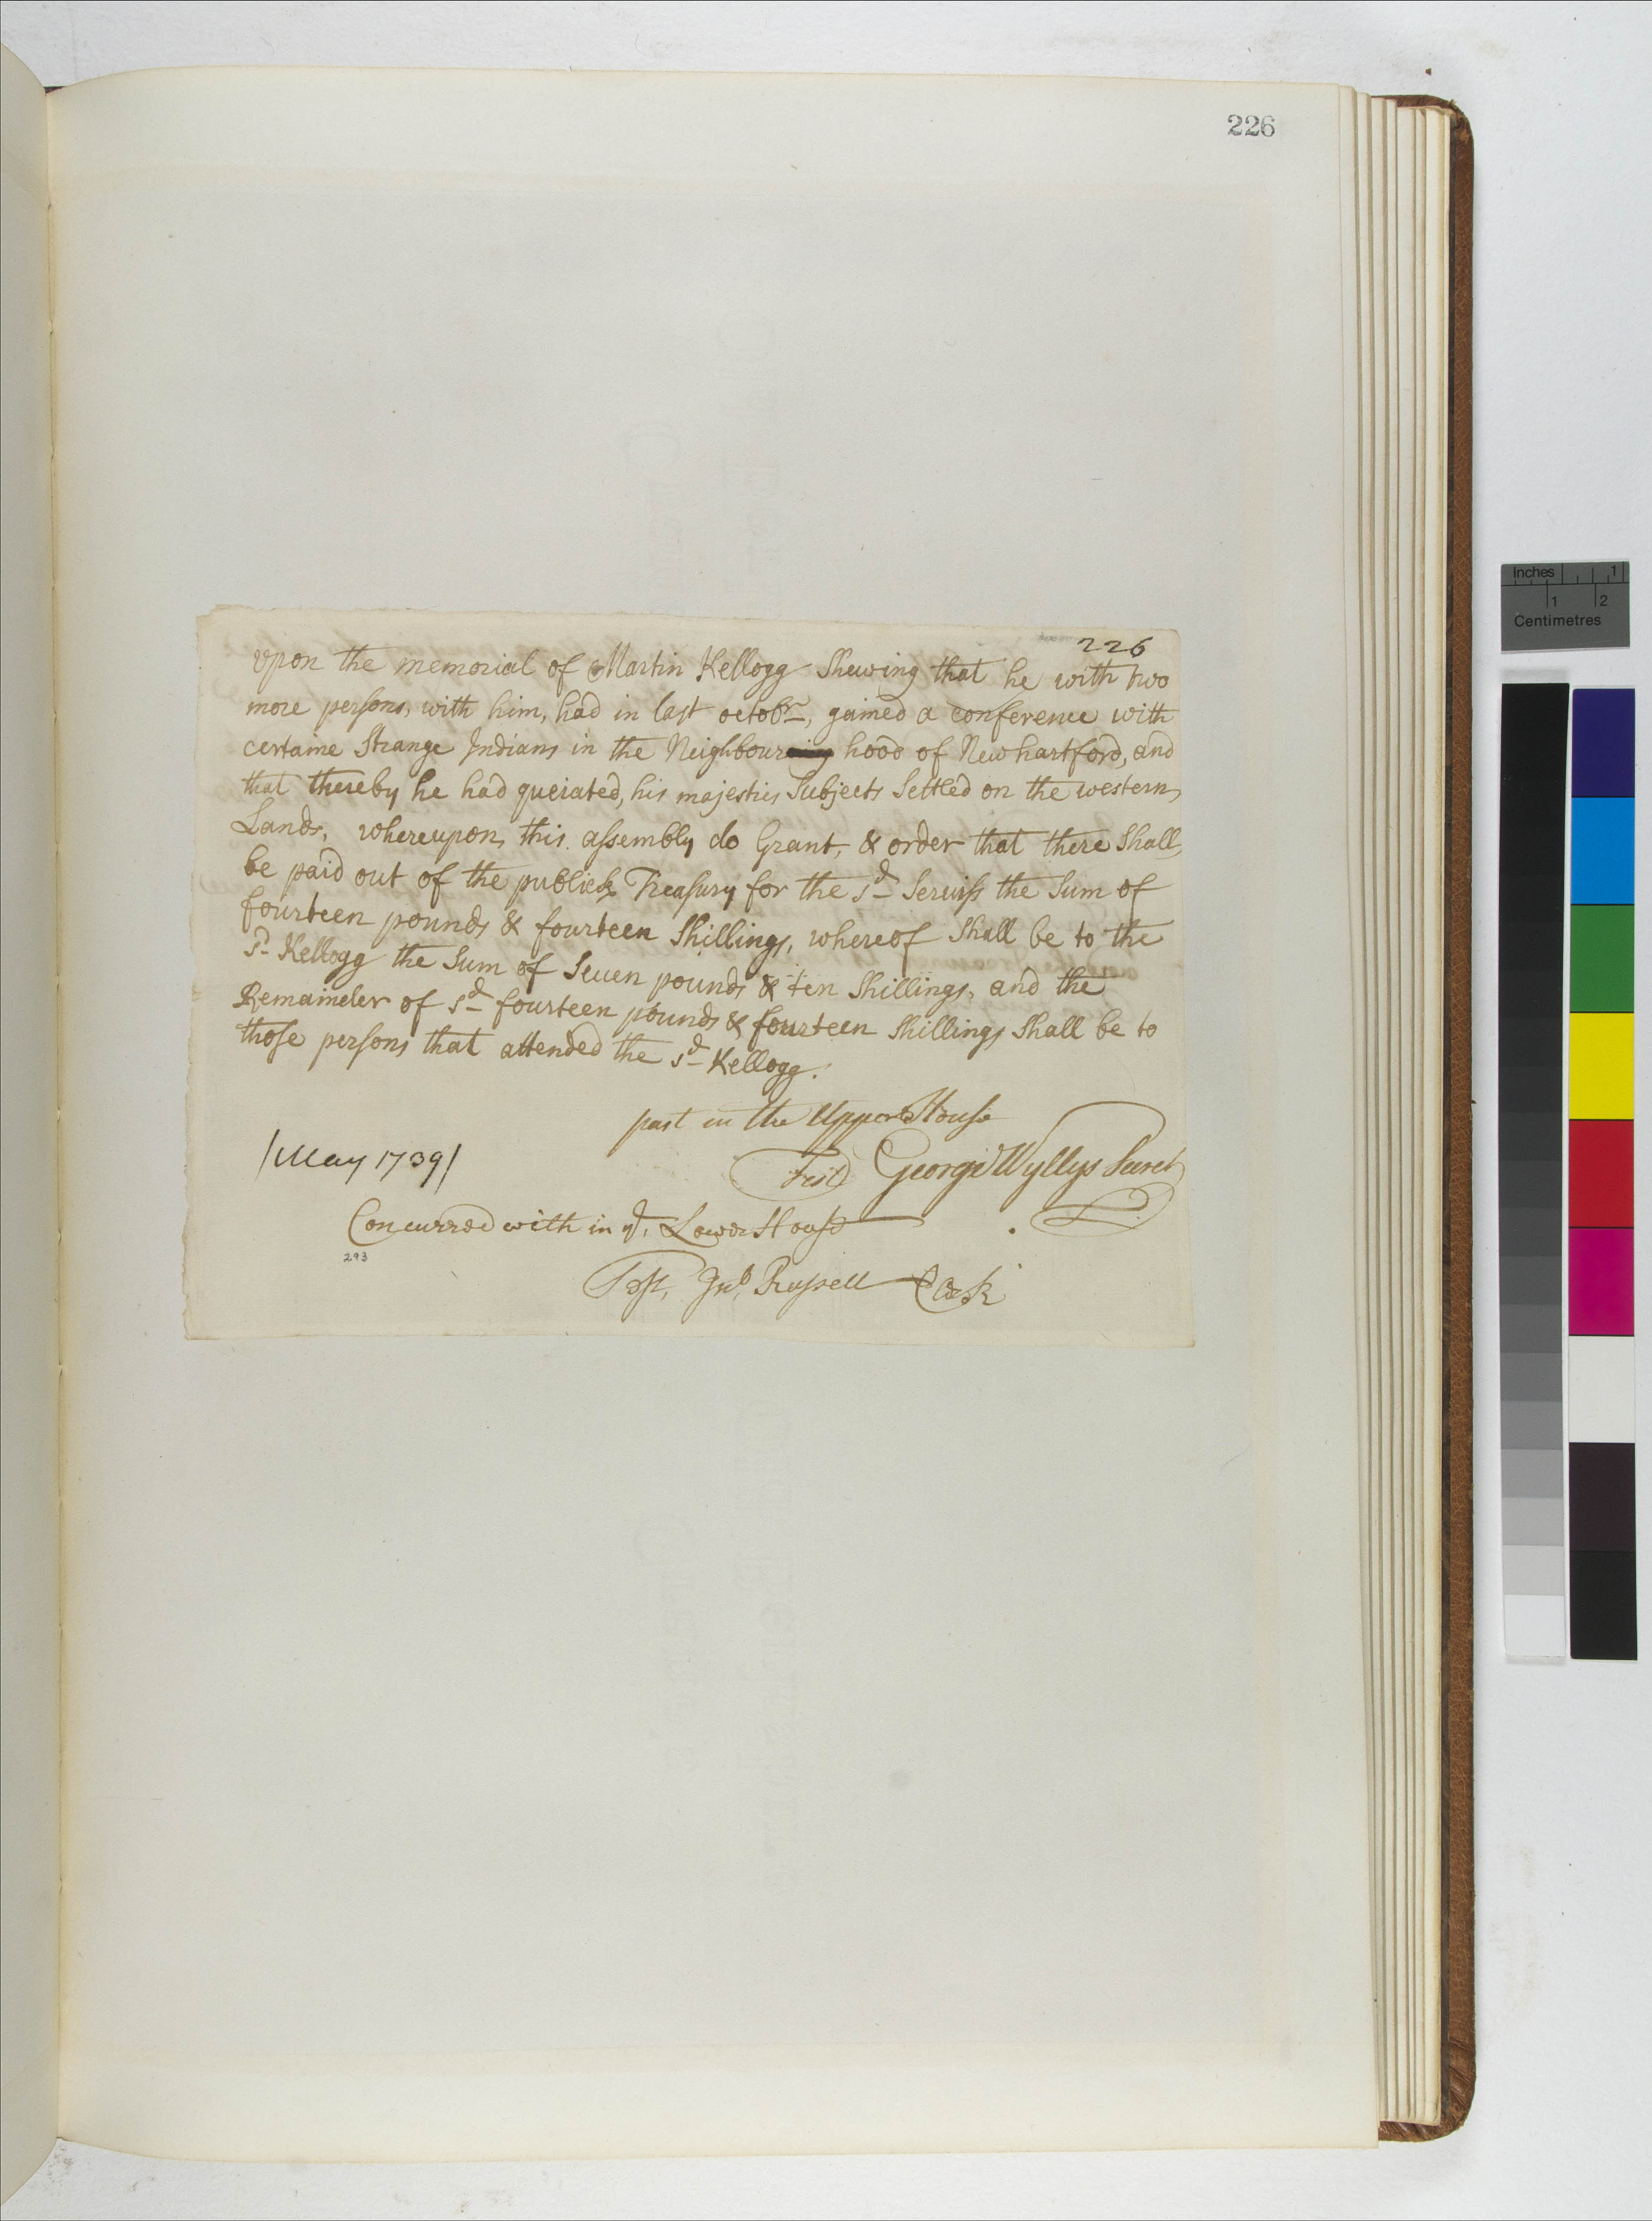 226
226
Upon the memorial of Martin Kellogg Shewing that he with two
more persons, with him, had in last octobr, gained a conference with
certaine Strange Indians in the Neighbour hood of New hartford, and
that thereby he had queiated, his majesties Subjects Settled on the western
Lands, whereupon, this assembly do Grant, & order that there Shall
be paid out of the publick Treasury for the sd Serviss the Sum of
fourteen pounds & fourteen Shillings, whereof Shall be to the
sd Kellogg the Sum of Seuen pounds & ten Shillings, and the
Remainder of sd fourteen pounds & fourteen Shillings Shall be to
those persons that attended the sd Kellogg.
past in the Upper House
/May 1739/
Test George Wyllys Secret
Concurred with in ye. Lower House
293
Test, Jno. Russell Clerk
Inches 1
1 2
Centimetres